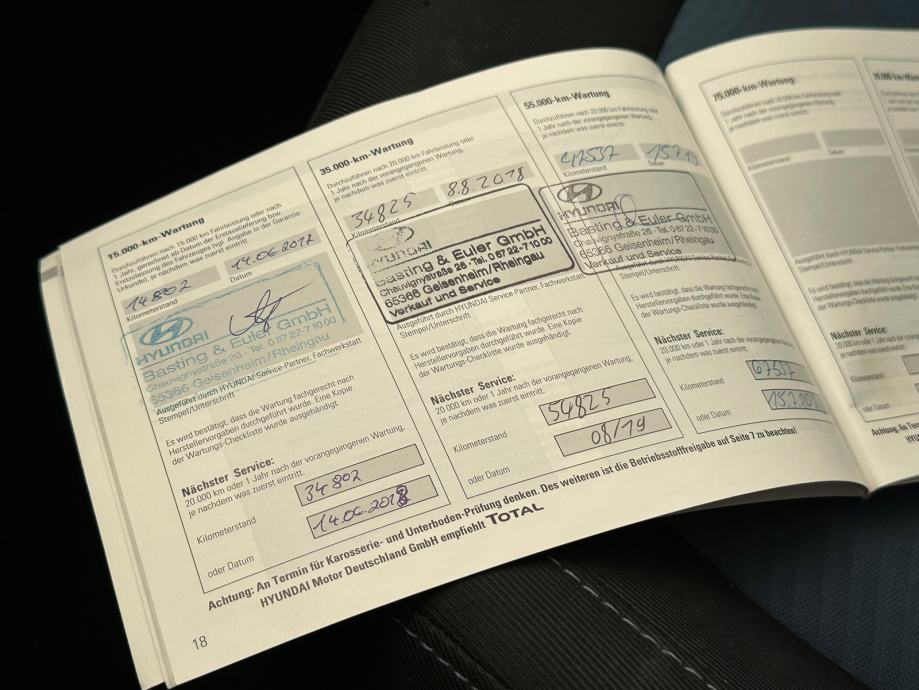 15.000-km-Wartung
Durchzuführen nach 15.000 km Fahrleistung oder nach
1 Jahr gerechnet ab Datum der Erstauslieferung bzw.
Erstzulassung des Fahrzeuges lvgl. Angabe in der Garantie-
Urkunde), je nachdem was zuerst eintritt.
14802
14.06.2017
Kilometerstand
Datum
HYUNDAI
Basting & Euler GmbH
Chauvignystraße 26 · Tel. 0 67 22-7 10 00
65366 Geisenheim/Rheingau
Ausgeführt durch HYUNDAI Service-Partner, Fachwerkstatt
Stempel/Unterschrift
Es wird bestätigt, dass die Wartung fachgerecht nach
Herstellervorgaben durchgeführt wurde. Eine Kopie
der Wartungs-Checkliste wurde ausgehändigt.
Nächster Service:
20.000 km oder 1 Jahr nach der vorangegangenen Wartung,
je nachdem was zuerst eintritt.
Kilometerstand
34802
oder Datum
14.06.2018
35.000-km-Wartung
Durchzuführen nach 20.000 km Fahrleistung oder
1 Jahr nach der vorangegangenen Wartung,
je nachdem was zuerst eintritt.
34825
8.8.2018
Kilometerstand
HYUNDAI
Basting & Euler GmbH
Chauvignystraße 26 · Tel. 0 67 22-7 10 00
65366 Geisenheim/Rheingau
Verkauf und Service
Ausgeführt durch HYUNDAI Service-Partner, Fachwerkstatt
Stempel/Unterschrift
Es wird bestätigt, dass die Wartung fachgerecht nach
Herstellervorgaben durchgeführt wurde. Eine Kopie
der Wartungs-Checkliste wurde ausgehändigt.
Nächster Service:
20.000 km oder 1 Jahr nach der vorangegangenen Wartung,
je nachdem was zuerst eintritt.
Kilometerstand
54825
oder Datum
08/19
55.000-km-Wartung
Durchzuführen nach 20.000 km Fahrleistung oder
1 Jahr nach der vorangegangenen Wartung,
je nachdem was zuerst eintritt.
47537
15.7.19
Kilometerstand
Datum
HYUNDAI
Basting & Euler GmbH
Chauvignystraße 26 · Tel. 0 67 22-7 10 00
65366 Geisenheim/Rheingau
Verkauf und Service
Ausgeführt durch HYUNDAI Service-Partner
Stempel/Unterschrift
Es wird bestätigt, dass die Wartung fachgerecht
Herstellervorgaben durchgeführt wurde. Eine
der Wartungs-Checkliste wurde ausgehändigt.
Nächster Service:
20.000 km oder 1 Jahr nach der vorangegangenen
je nachdem was zuerst eintritt.
Kilometerstand
67537
oder Datum
15.7.20
Achtung: An Termin für Karosserie- und Unterboden-Prüfung denken. Des weiteren ist die Betriebsstofffreigabe auf Seite 7 zu beachten!
HYUNDAI Motor Deutschland GmbH empfiehlt TOTAL
18
75.000-km-Wartung
Durchzuführen nach 20.000 km Fahrleistung oder
1 Jahr nach der vorangegangenen Wartung,
je nachdem was zuerst eintritt.
Kilometerstand
Datum
Ausgeführt durch HYUNDAI Service-Partner
Stempel/Unterschrift
Es wird bestätigt, dass die Wartung
Herstellervorgaben durchgeführt
der Wartungs-Checkliste wurde
Nächster Service:
20.000 km oder 1 Jahr nach der
je nachdem was zuerst eintritt.
Kilometerstand
oder Datum
Achtung: An Termin